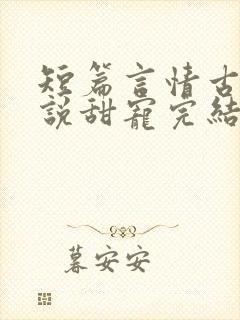 短篇言情古
說甜寵完結
暮安安